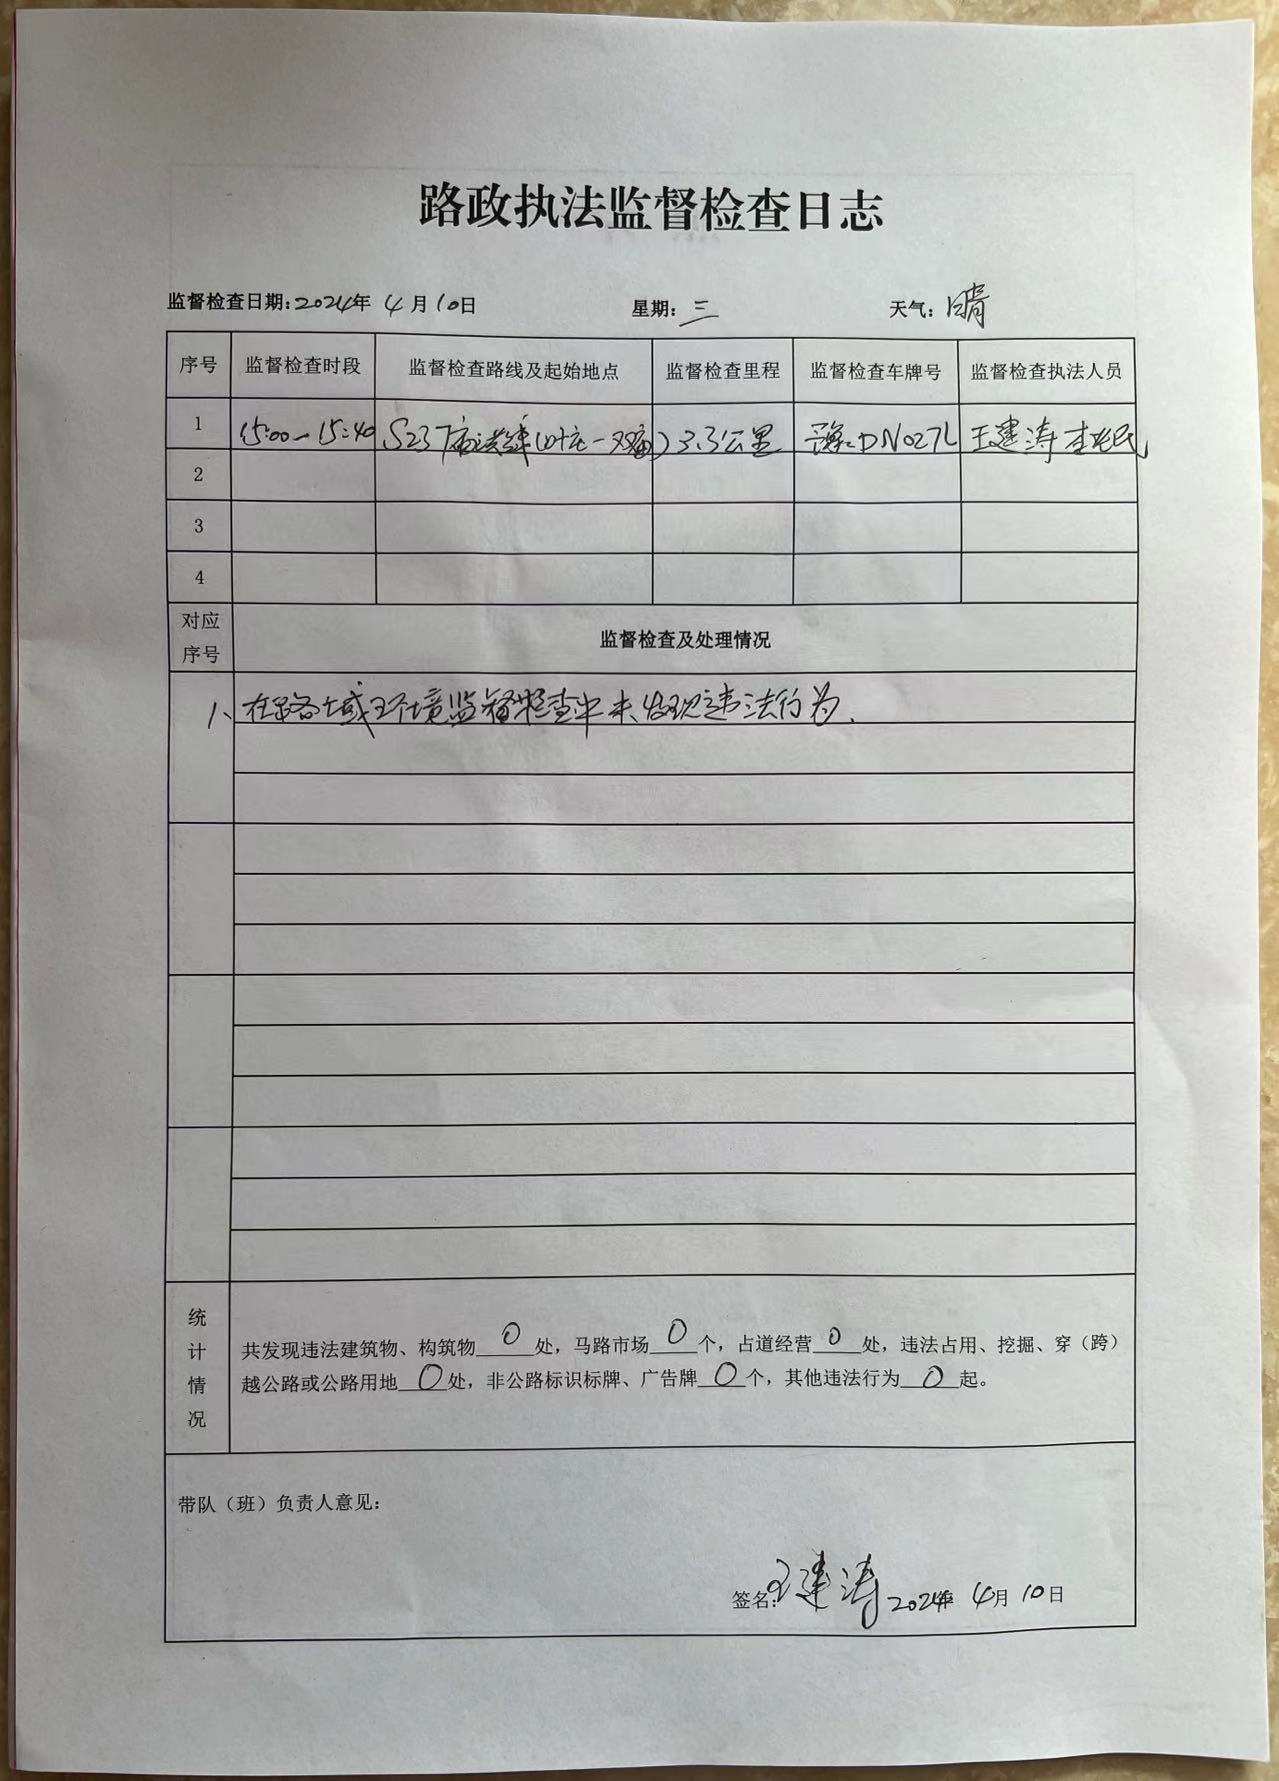 路政执法监督检查日志
监督检查日期:2024年 4月10日 星期:三 天气:晴
序号 监督检查时段 监督检查路线及起始地点 监督检查里程 监督检查车牌号 监督检查执法人员
1 15:00-15:40 S237 线(叶庄-双庙) 3.3公里 豫DN027L 王建涛
2
3
4
对应
序号
监督检查及处理情况
1、在路域环境监督检查中未发现违法行为.
统
计
情
况
共发现违法建筑物、构筑物 0 处，马路市场 0 个，占道经营 0 处，违法占用、挖掘、穿（跨）
越公路或公路用地 0 处，非公路标识标牌、广告牌 0 个，其他违法行为 0 起。
带队（班）负责人意见：
签名：王建涛 2024年 4月 10日